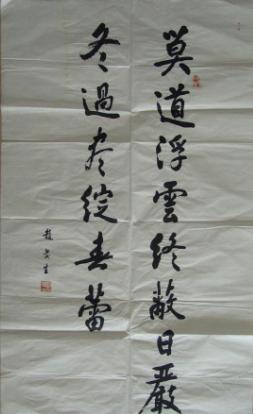 莫道浮雲終蔽日嚴
冬過尽綻春蕾